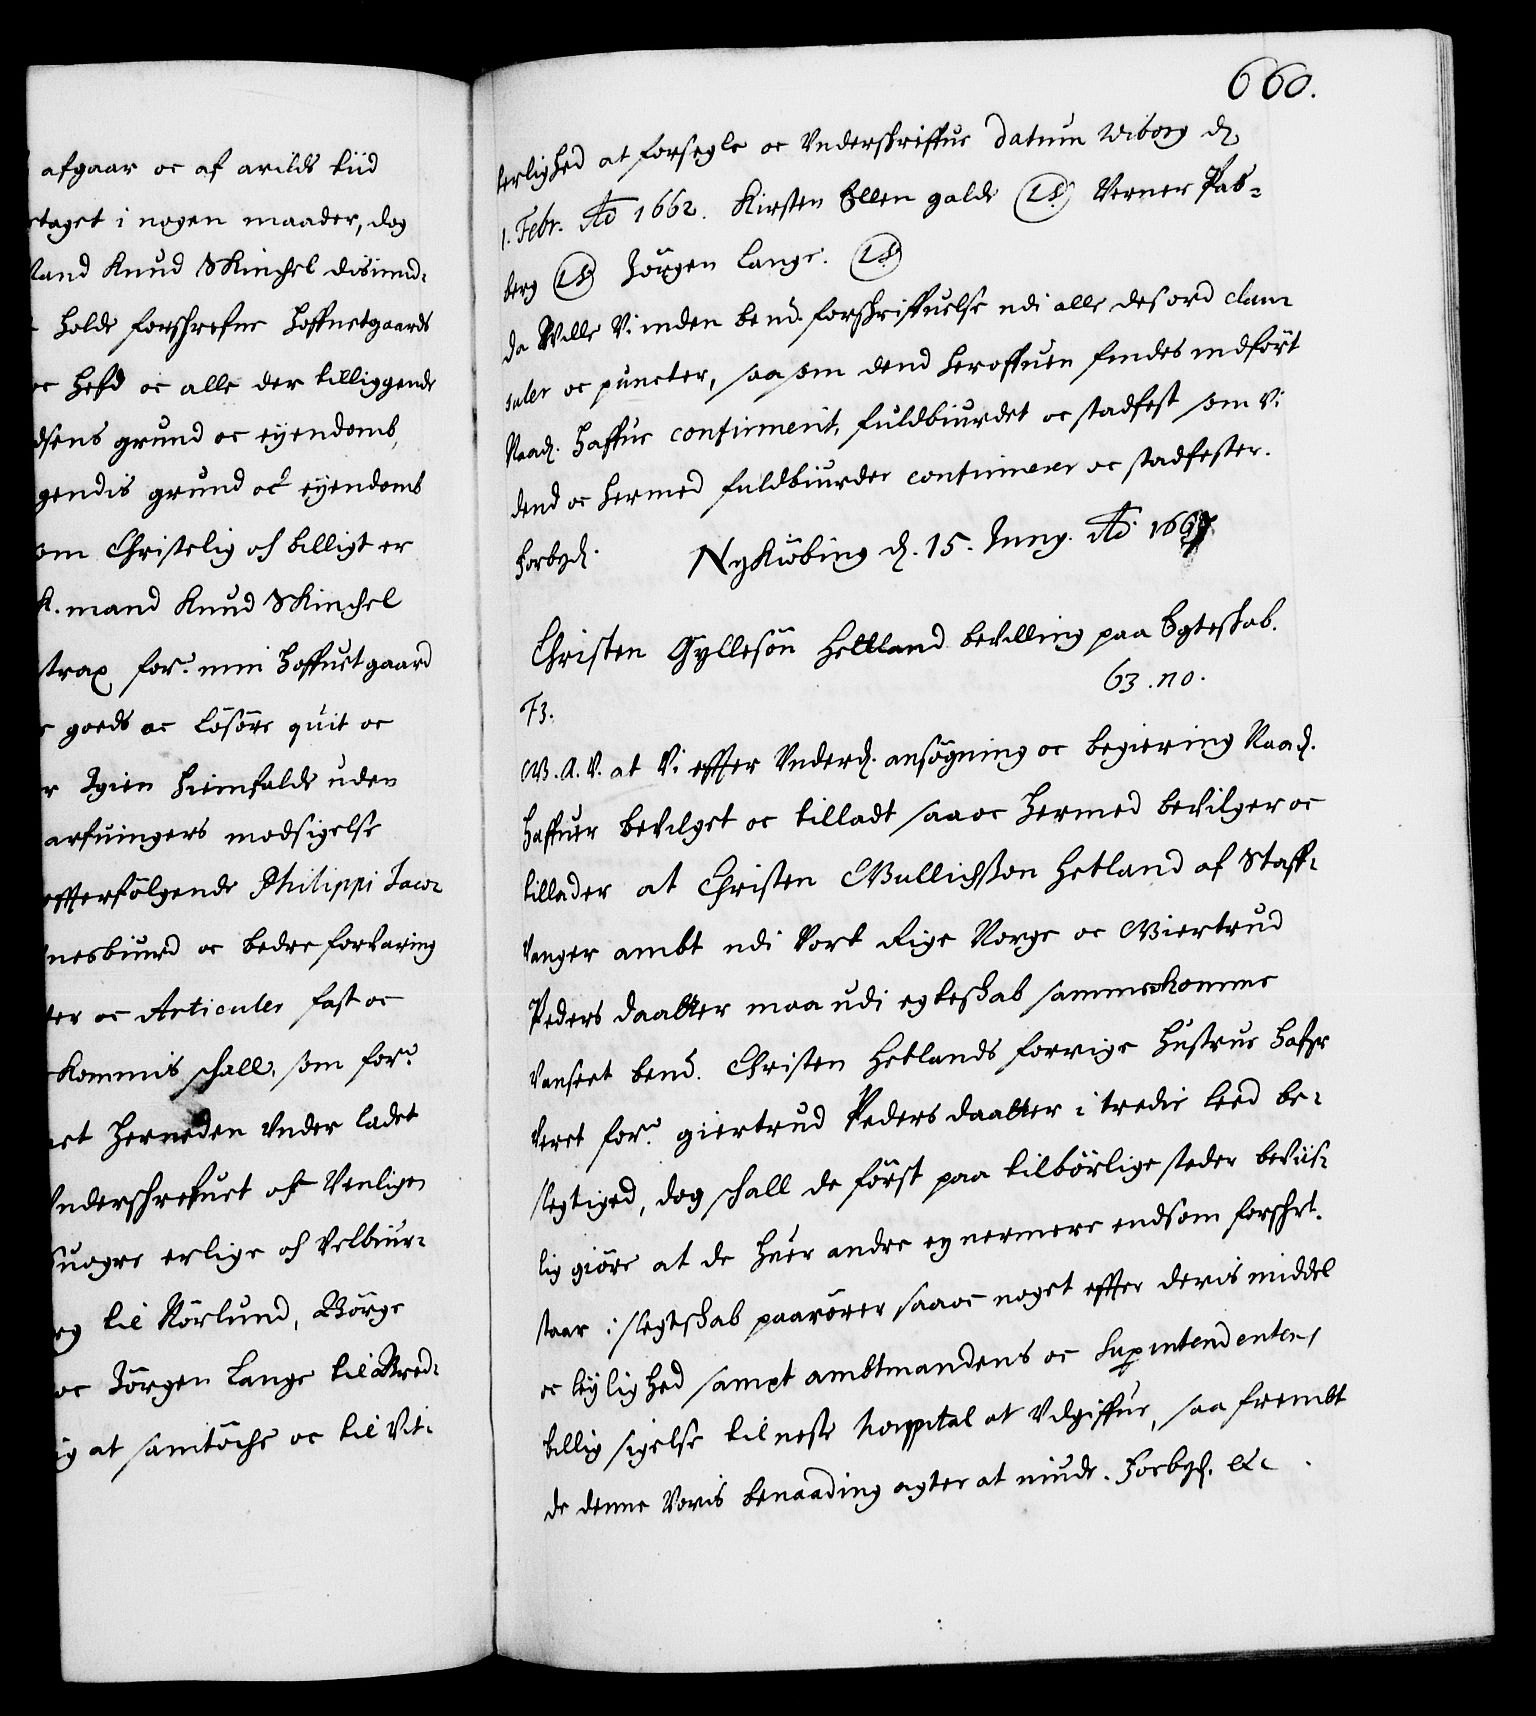 afgaar oc af arilds tiid
taget i nogen maader, dog
mand Knud Skinchel
holde forschrefne Hoffuetgaards
oc Hefd oc alle der tilliggende
dsens grund oc eyendomb,
gendis grund oc eyendomb
som Christelig och billigt er
K. mand Knud Skinchel
strax for: min Hoffuetgaard
goeds oc Lösöre quit oc
Igien Hiemfalde uden
arfuingers modsigelse
effterfölgende Philippi Jaco-
nesbiurd oc bedre forvaring
ter oc Articuler fast oc
Kommis schall, som for:
Herneden under ladet
Underschrefuet aff Venligen
Suogre erlige och Velbiur-
til Nörlund, Börge
oc Jörgen Lange til Bred-
at samtöche oc til Vit-
660.
terlighed at forsegle oc Underskriffue Datum Wiborg d.
1. Febr. Ao 1662. Kirsten Ellen galde (LS) Verner Pas-
berg (LS) Jörgen Lange. (LS)
Da Wille Vi inden bend. forskriffuelse udi alle des ord clau-
suler oc puncter, saasom dend heroffuen findes indfört
Naad. Haffue confirmerit, fuldbiurdet oc stadfest som Vi
dend oc hermed fuldbiurder confirmerer oc stadfester.
Forbyd. NyKiöbing d. 15. Juny. Ao 1667
Christen Gyllesön Hetland bevilling paa Egteskab.
63. no.
F3.
G. A. V. at Vi effter Underd. ansögning oc begiering Naad.
Haffuer bevilget oc tilladt saa oc Hermed bevilger oc
tillader at Christen Gullichsson Hetland af Staff-
vanger ambt udi Vort Rige Norge oc Giertrud
Peders daatter maa udi egteskab sammenkomme
Vanseet bend. Christen Hetlands forrige Hustrue Hafver
Veret for: giertrud Peders daatter i tredie leed be-
slegtiged, dog schall de först paa tilbörlige steder beviis-
lig giöre at de Huer andre ey nermere endsom forschrt.
staar i slegtskab paarörer saa oc noget effter deris middel
oc leylighed sampt ambtmandens oc Superintendentens
billig sigelse til neste Hospital at Udgiffue, saa frembt
de denne Voris benaading agter at niude. Forbyd. etc.